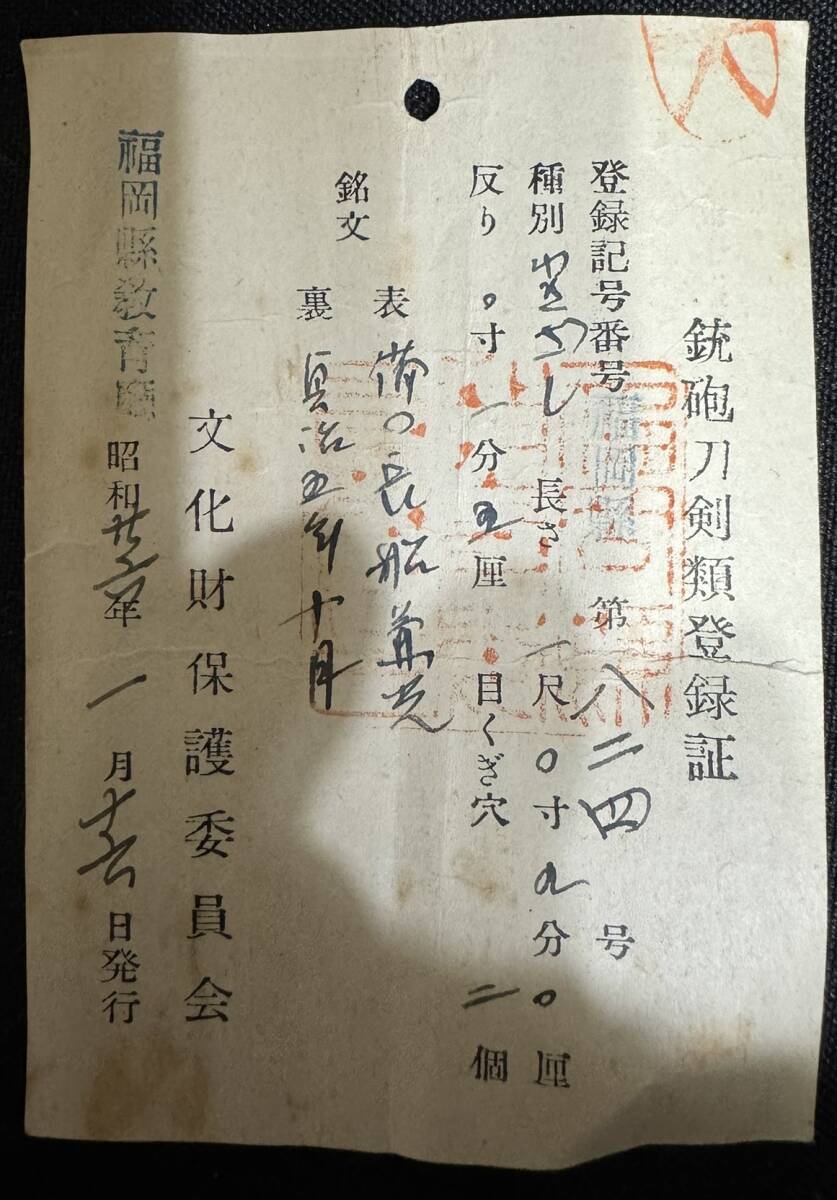 銃砲刀剣類登録証
登録記号番号 福岡縣 第八二四号
種別 わきざし 長さ 一尺〇寸九分〇厘
反り 〇寸一分五厘 目くぎ穴 二個
銘文
表 備〇長船兼光
裏 貞治五年十月
文化財保護委員会
福岡縣教育廳
昭和 年 一月十六日発行